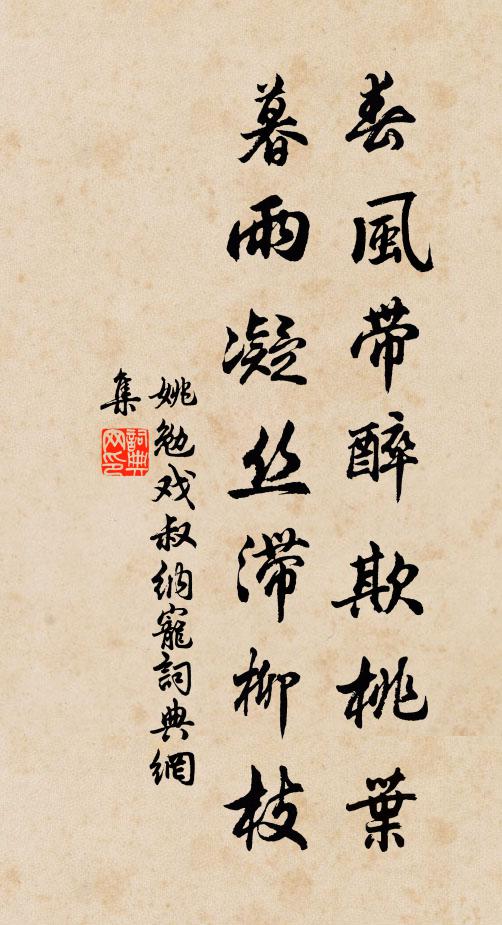 春風帶醉欺桃葉
暮雨凝丝滯柳枝
姚勉戏叔纳寵詞典網
集
詞典
网印